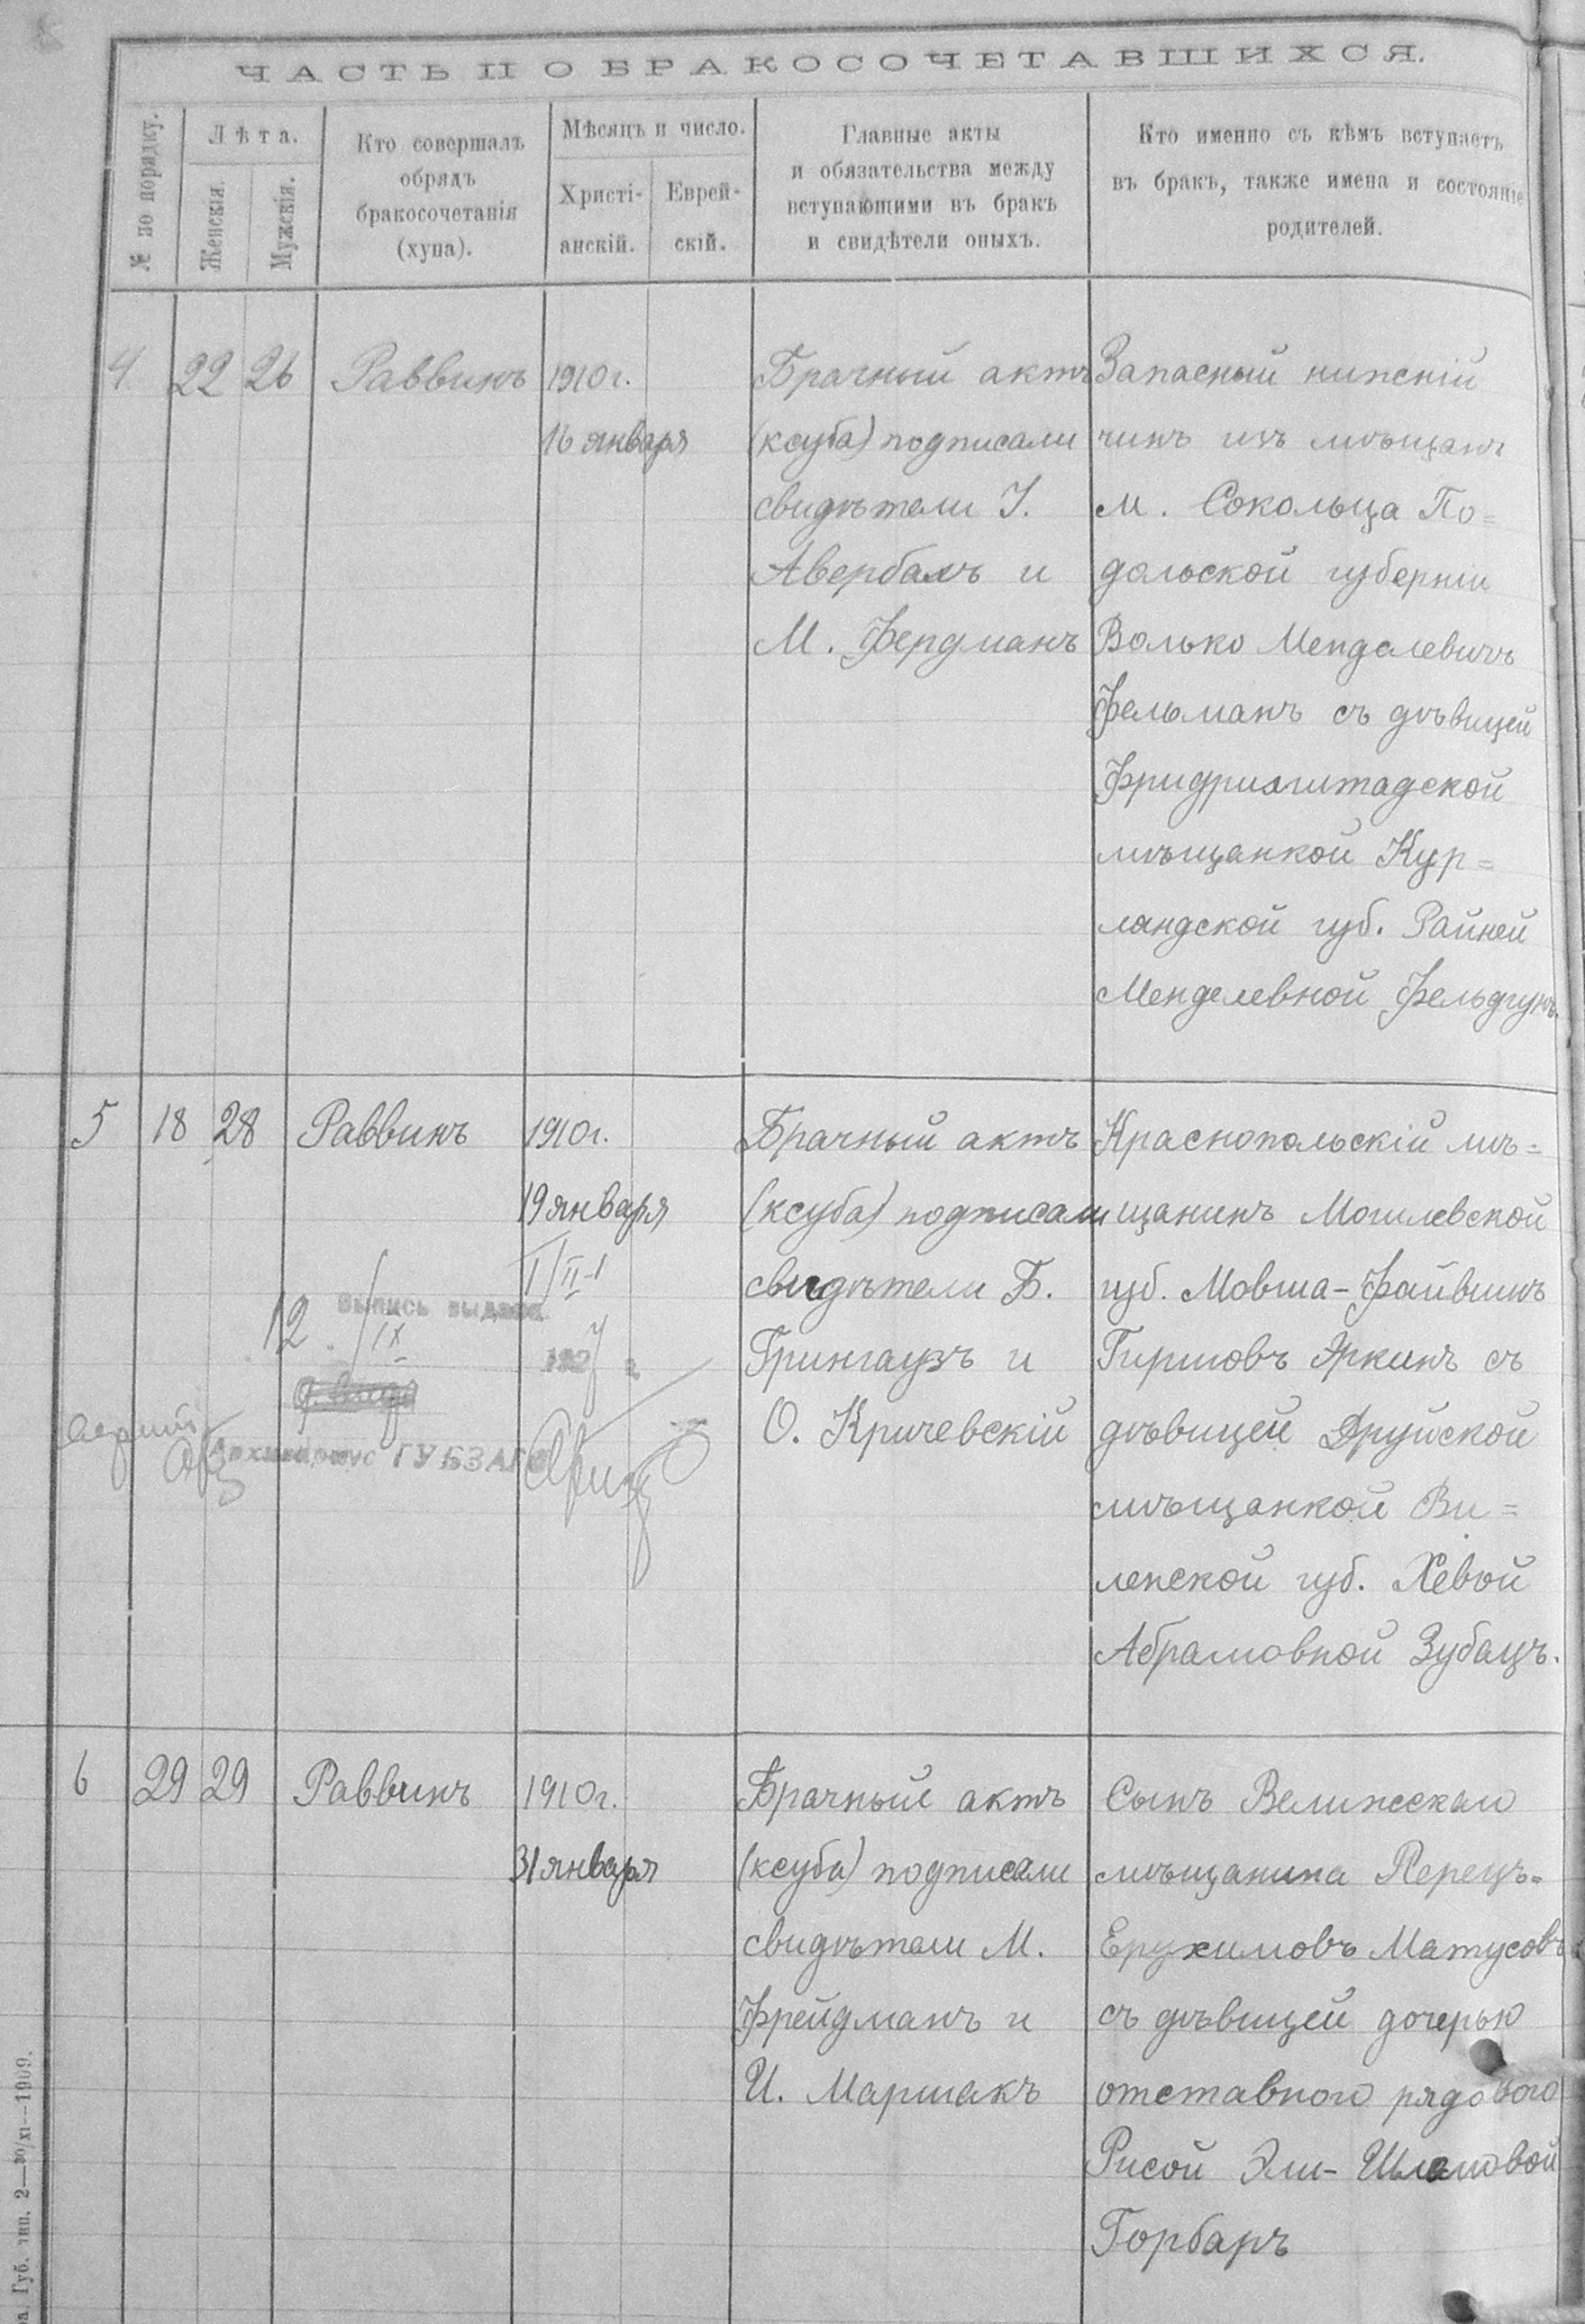 ЧАСТЬ II О БРАКОСОЧЕТАВШИХСЯ.
№ по порядку.
Лѣта.
Женскія.
Мужскія.
Кто совершалъ
обрядъ
бракосочетанія
(хупа).
Мѣсяцъ и число.
Христі-
анскій.
Еврей-
скій.
Главные акты
и обязательства между
вступающими въ бракъ
и свидѣтели оныхъ.
Кто именно съ кѣмъ вступаетъ
въ бракъ, также имена и состояніе
родителей.
4
22
26
Раввинъ
1910г.
16 января
Брачный актъ
(ксуба) подписали
свидѣтели I.
Авербахъ и
М. Фердманъ
Запасный нижній
чинъ изъ мѣщанъ
м. Сокольца По=
дольской губерніи
Волько Менделевичъ
Фельманъ съ дѣвицей
Фридрихштадской
мѣщанкой Кур=
ляндской губ. Райней
Менделевной Фельдгунъ.
5
18
28
Раввинъ
1910г.
19 января
I/II-1
Брачный актъ
(ксуба) подписали
свидѣтели Б.
Грингаузъ и
О. Кричевскій
Краснопольскій мѣ=
щанинъ Могилевской
губ. Мовша-Файвишъ
Гиршовъ Эркинъ съ
дѣвицей Друйской
мѣщанкой Ви=
ленской губ. Хевой
Абрамовной Зубацъ.
12/IX
выпись выдана
1927 г.
Архивариус ГУБЗАГС
6
29
29
Раввинъ
1910г.
31 января
Брачный актъ
(ксуба) подписали
свидѣтели М.
Фрейдманъ и
И. Маршакъ
Сынъ Велижскаго
мѣщанина Перецъ-
Ерухимовъ Матусовъ
съ дѣвицей дочерью
отставного рядового
Рисой Эли-Шлемовой
Горбаръ
Губ. тип. 2—30/XI—1909.